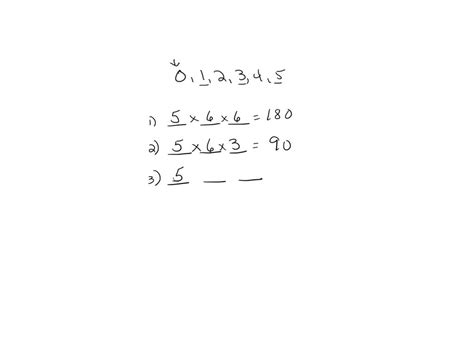 ↓
0, 1, 2, 3, 4, 5
1) 5 × 6 × 6 = 180
2) 5 × 6 × 3 = 90
3) 5 _ _